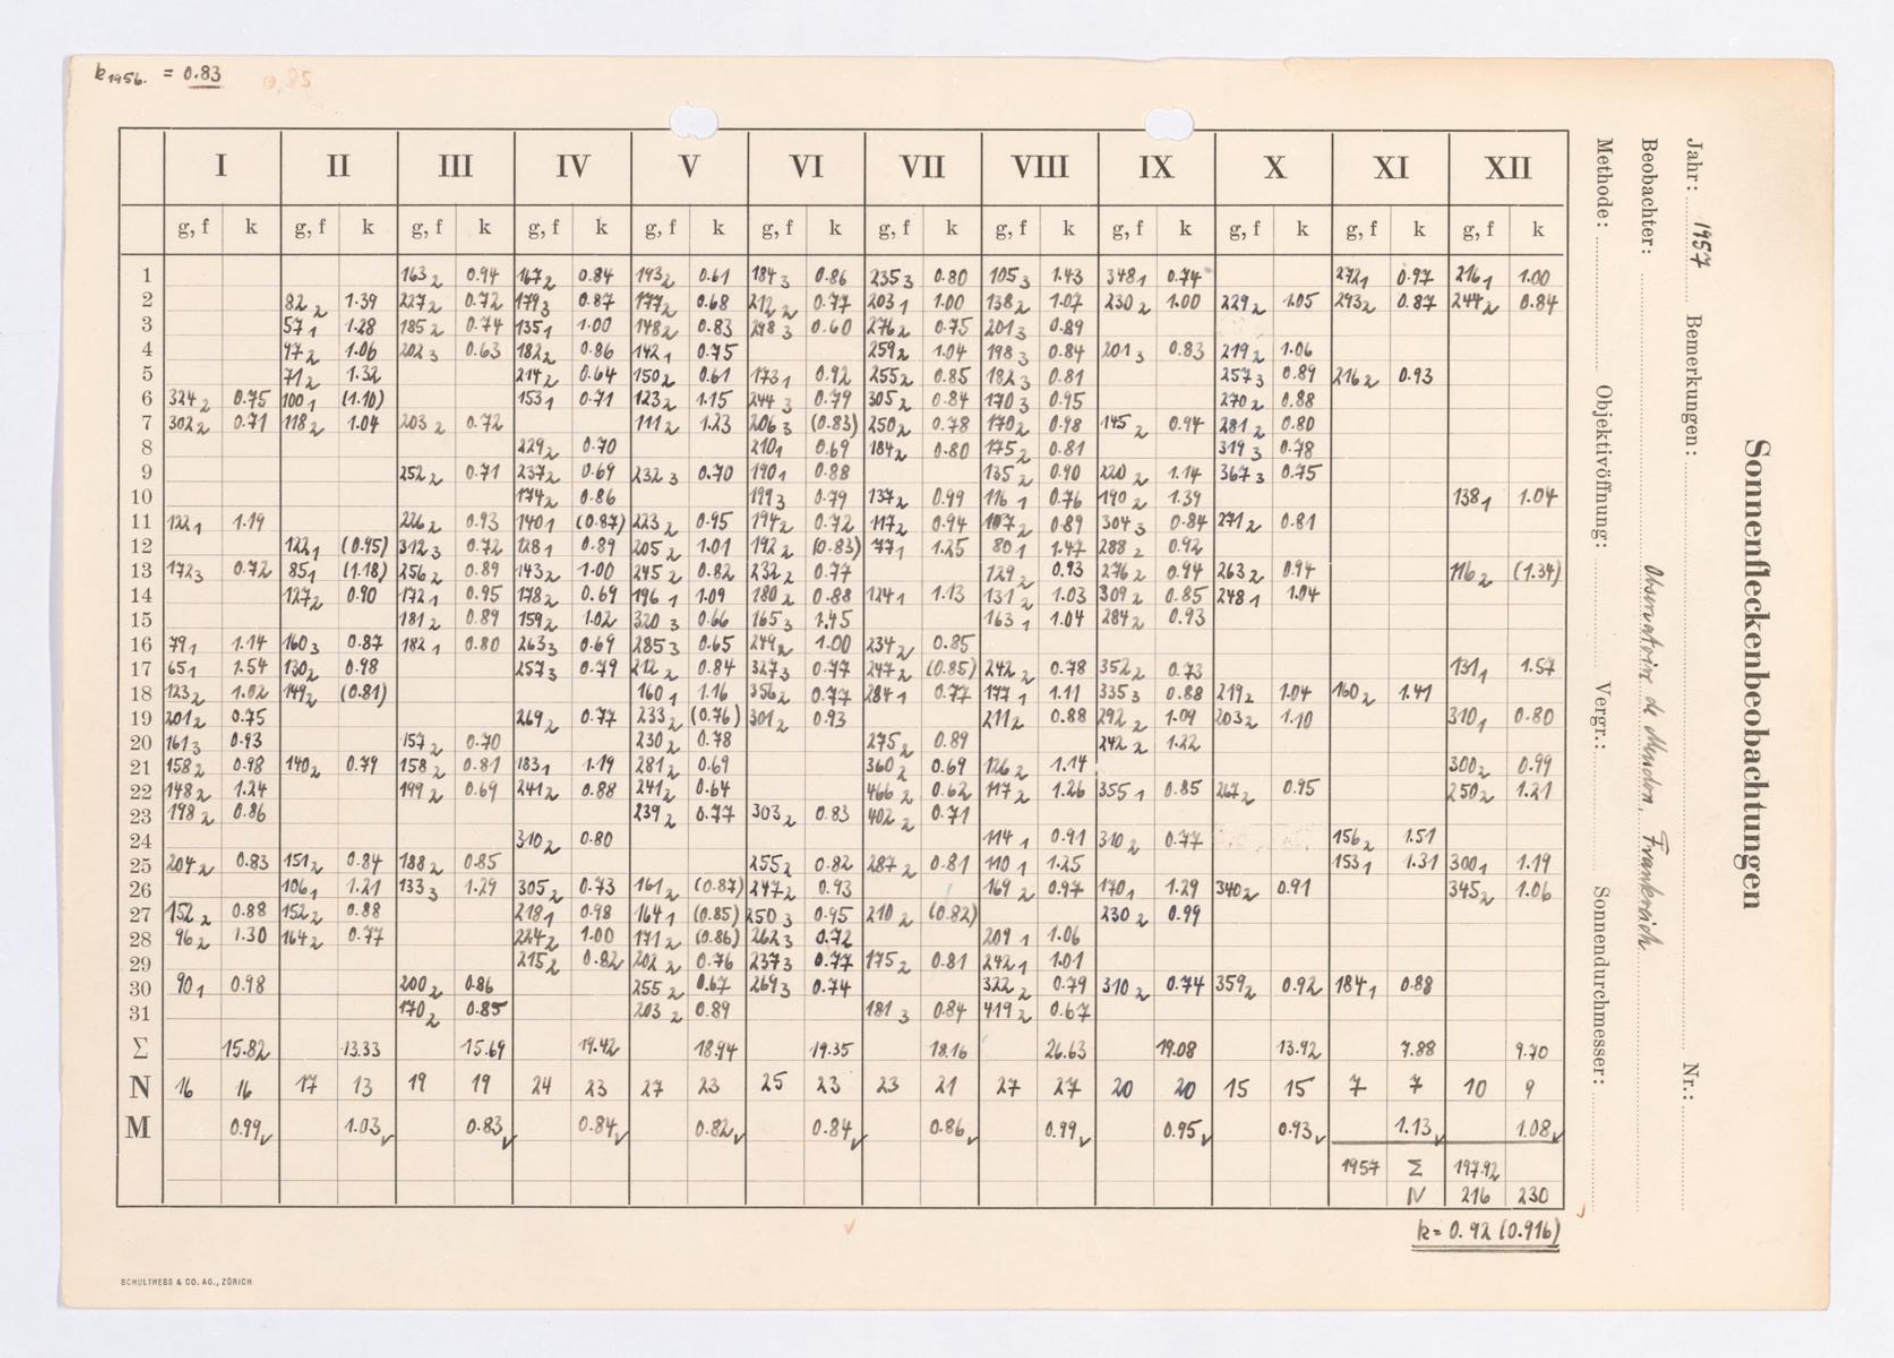 k1956. = 0.83 0,85
I II III IV V VI VII VIII IX X XI XII
g, f k g, f k g, f k g, f k g, f k g, f k g, f k g, f k g, f k g, f k g, f k g, f k
1 163 2 0.94 167 2 0.84 193 2 0.61 184 3 0.86 235 3 0.80 105 3 1.43 348 1 0.74 272 1 0.97 216 1 1.00
2 82 2 1.39 227 2 0.72 179 3 0.87 177 2 0.68 212 2 0.77 203 1 1.00 138 2 1.07 230 2 1.00 229 2 1.05 293 2 0.87 244 2 0.84
3 57 1 1.28 185 2 0.74 135 1 1.00 148 2 0.83 298 3 0.60 276 2 0.75 201 3 0.89
4 97 2 1.06 202 3 0.63 182 2 0.86 142 1 0.75 259 2 1.04 198 3 0.84 201 3 0.83 219 2 1.06
5 71 2 1.32 214 2 0.64 150 2 0.61 173 1 0.92 255 2 0.85 182 3 0.81 257 3 0.89 216 2 0.93
6 324 2 0.75 100 1 (1.10) 153 1 0.71 123 2 1.15 244 3 0.79 305 2 0.84 170 3 0.95 270 2 0.88
7 302 2 0.71 118 2 1.04 203 2 0.72 111 2 1.23 206 3 (0.83) 250 2 0.78 170 2 0.98 145 2 0.94 281 2 0.80
8 229 2 0.70 210 1 0.69 184 2 0.80 175 2 0.81 319 3 0.78
9 252 2 0.71 237 2 0.69 232 3 0.70 190 1 0.88 135 2 0.90 220 2 1.14 367 3 0.75
10 174 2 0.86 199 3 0.79 137 2 0.99 116 1 0.76 190 2 1.39 138 1 1.04
11 122 1 1.19 226 2 0.93 140 1 (0.87) 223 2 0.95 194 2 0.72 117 2 0.94 107 2 0.89 304 3 0.84 271 2 0.81
12 122 1 (0.95) 312 3 0.72 128 1 0.89 205 2 1.01 192 2 (0.83) 77 1 1.25 80 1 1.47 288 2 0.92
13 172 3 0.72 85 1 (1.18) 256 2 0.89 143 2 1.00 245 2 0.82 232 2 0.77 129 2 0.93 276 2 0.94 263 2 0.94 116 2 (1.34)
14 127 2 0.90 172 1 0.95 178 2 0.69 196 1 1.09 180 2 0.88 124 1 1.13 131 2 1.03 309 2 0.85 248 1 1.04
15 181 2 0.89 159 2 1.02 320 3 0.66 165 3 1.45 163 1 1.04 284 2 0.93
16 79 1 1.14 160 3 0.87 182 1 0.80 263 3 0.69 285 3 0.65 249 2 1.00 234 2 0.85
17 65 1 1.54 130 2 0.98 257 3 0.79 212 2 0.84 327 3 0.77 247 2 (0.85) 242 2 0.78 352 2 0.73 131 1 1.57
18 123 2 1.02 149 2 (0.81) 160 1 1.16 356 2 0.77 284 1 0.77 177 1 1.11 335 3 0.88 219 2 1.04 160 2 1.41
19 201 2 0.75 269 2 0.77 233 2 (0.76) 301 2 0.93 211 2 0.88 292 2 1.09 203 2 1.10 310 1 0.80
20 161 3 0.93 157 2 0.70 230 2 0.78 275 2 0.89 242 2 1.22
21 158 2 0.98 140 2 0.79 158 2 0.81 183 1 1.19 281 2 0.69 360 2 0.69 126 2 1.14 300 2 0.99
22 148 2 1.24 199 2 0.69 241 2 0.88 241 2 0.64 466 2 0.62 117 2 1.26 355 1 0.85 267 2 0.95 250 2 1.21
23 198 2 0.86 239 2 0.77 303 2 0.83 402 2 0.71
24 310 2 0.80 114 1 0.91 310 2 0.77 156 2 1.51
25 204 2 0.83 151 2 0.84 188 2 0.85 255 2 0.82 287 2 0.81 110 1 1.25 153 1 1.31 300 1 1.19
26 106 1 1.21 133 3 1.29 305 2 0.73 161 2 (0.87) 247 2 0.93 169 2 0.97 170 1 1.29 340 2 0.91 345 2 1.06
27 152 2 0.88 152 2 0.88 218 1 0.98 164 1 (0.85) 250 3 0.95 210 2 (0.82) 230 2 0.99
28 96 2 1.30 164 2 0.77 224 2 1.00 171 2 (0.86) 262 3 0.72 209 1 1.06
29 215 2 0.82 202 2 0.76 237 3 0.77 175 2 0.81 242 1 1.01
30 90 1 0.98 200 2 0.86 255 2 0.67 269 3 0.74 322 2 0.79 310 2 0.74 359 2 0.92 184 1 0.88
31 170 2 0.85 203 2 0.89 181 3 0.84 419 2 0.67
Σ 15.82 13.33 15.69 19.42 18.94 19.35 18.16 26.63 19.08 13.92 7.88 9.70
N 16 16 17 13 19 19 24 23 27 23 25 23 23 21 27 27 20 20 15 15 7 7 10 9
M 0.99 1.03 0.83 0.84 0.82 0.84 0.86 0.99 0.95 0.93 1.13 1.08
1957 Σ 197.92
N 216 230
k = 0.92 (0.916)
SCHULTHESS & CO. AG., ZÜRICH
Sonnenfleckenbeobachtungen
Jahr: 1957 Bemerkungen: Nr.:
Beobachter: Observatoire de Meudon, Frankreich
Methode: Objektivöffnung: Vergr.: Sonnendurchmesser: